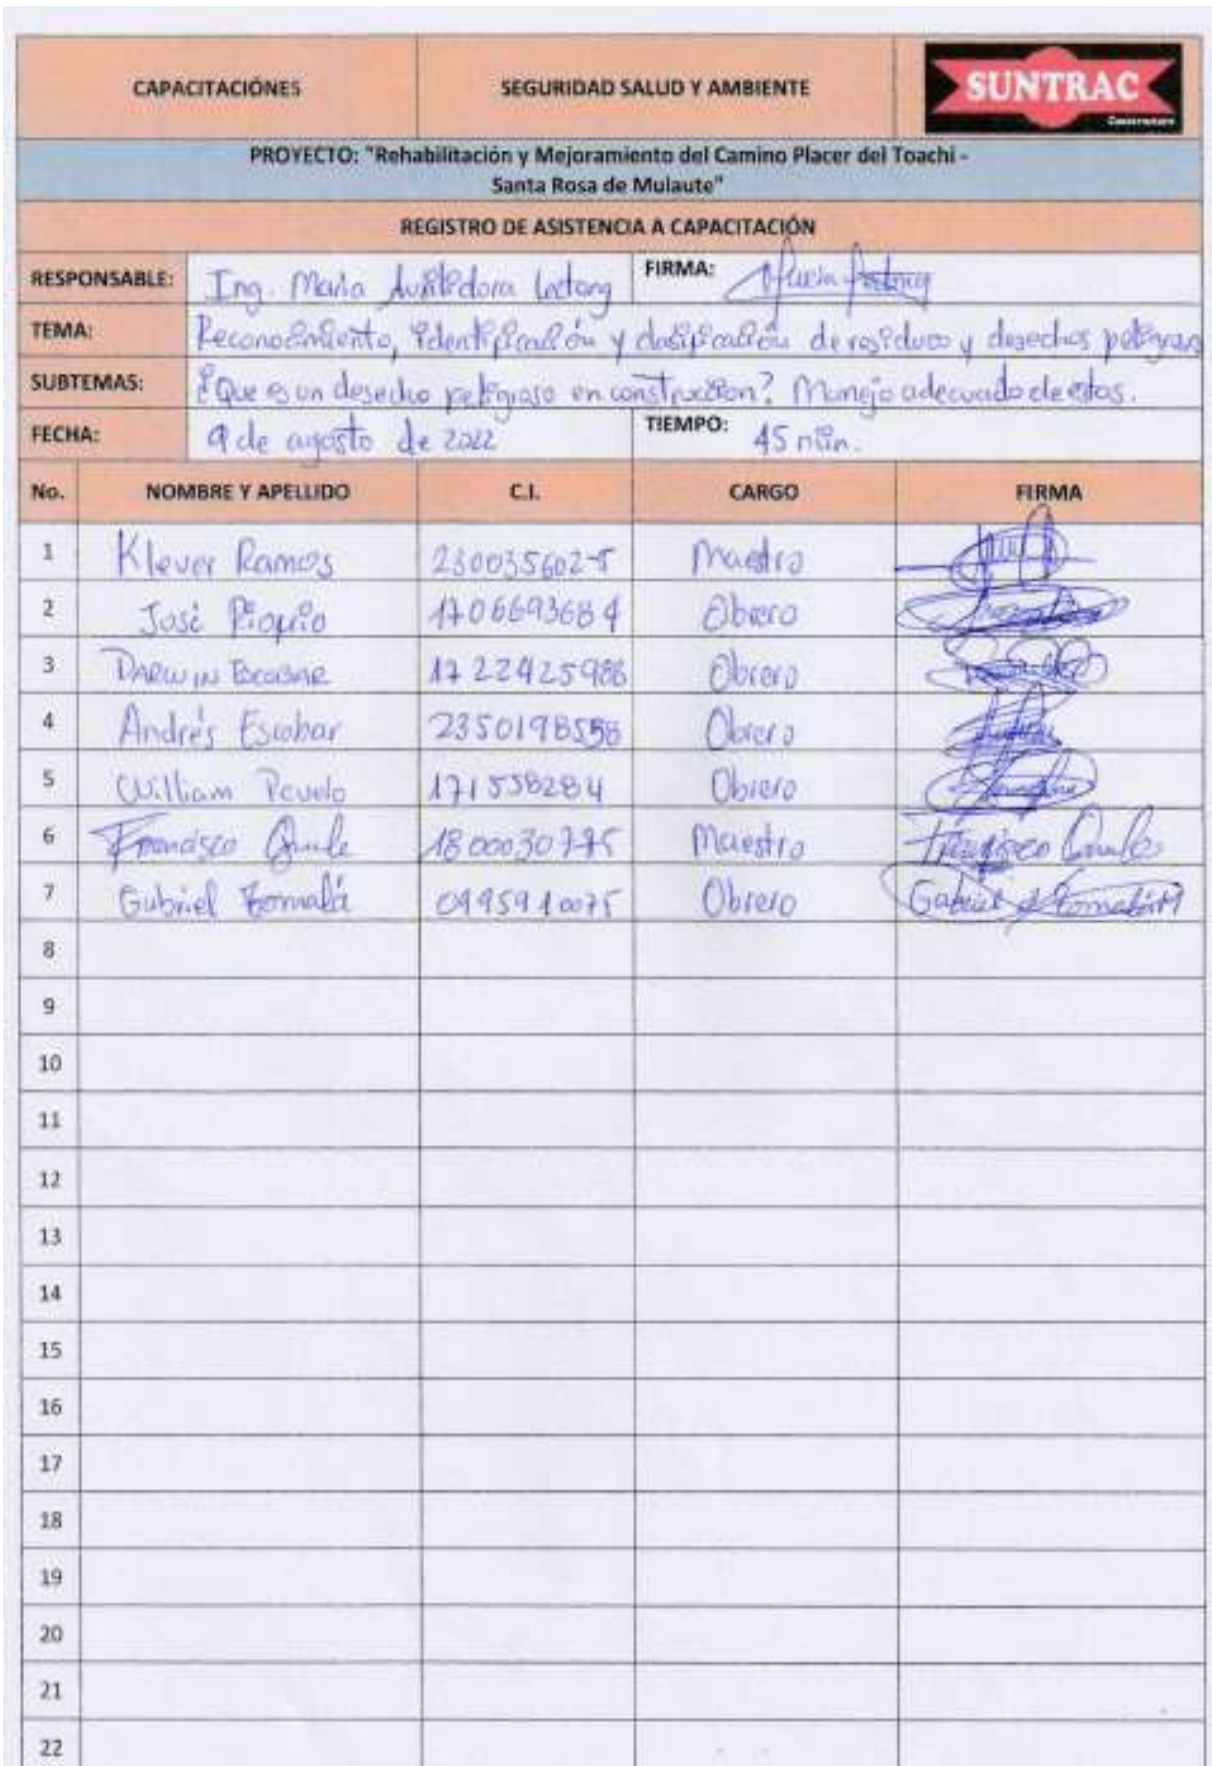 CAPACITACIÓNES SEGURIDAD SALUD Y AMBIENTE SUNTRAC
Constructora
PROYECTO: "Rehabilitación y Mejoramiento del Camino Placer del Toachi -
Santa Rosa de Mulaute"
REGISTRO DE ASISTENCIA A CAPACITACIÓN
RESPONSABLE: Ing. Maria Auxiliadora FIRMA:
TEMA: Reconocimiento, identificación y clasificación de residuos y desechos peligrosos
SUBTEMAS: ¿Que es un desecho peligroso en construccion? Manejo adecuado de estos.
FECHA: 9 de agosto de 2022 TIEMPO: 45 min.
No. NOMBRE Y APELLIDO C.I. CARGO FIRMA
1 Klever Ramos 230035602-5 Maestro
2 José 1706693684 Obrero
3 DARWIN ESCOBAR 1722425988 Obrero
4 Andrés Escobar 2350198558 Obrero
5 William 171558284 Obrero
6 Francisco 1800030775 Maestro Francisco
7 Gabriel Tomalá 0995910075 Obrero Gabriel Tomalá M
8
9
10
11
12
13
14
15
16
17
18
19
20
21
22